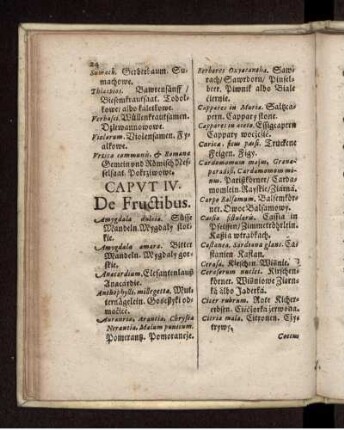 24
Sumach. Gerberbaum. Su-
machowe.
Thlaspios. Bawrensänff /
Biesemkrautsaat. Tobol-
kowe: albo kaletkowe.
Verbasci. Wüllenkrautsamen.
Dziewannowowe.
Violarum. Violensamen. Fy-
alkowe.
Vrtica communis, & Romana
Gemein und Römisch Nes-
selsaat. Pokrziwowe.
CAPVT IV.
De Fructibus.
Amygdala dulcia. Süsse
Mandeln. Migdały słot-
kie.
Amygdala amara. Bitter
Mandeln. Migdały gor-
skie.
Anacardium. Elefantenlauß
Anacardie.
Anthophylli,
nägelein. Gozdziki od-
Aurantia, Arantia, Chrysia
Nerantia, Malum punicum.
Pomerantz. Pomorancze.
Berberis Oxyacantha. Saw-
rach / Sawrdorn / Pinsel-
beer. Piwnik albo Biale
ciernie.
Cappares in Muria. Saltzca-
pern. Cappary słone.
Cappares in aceto. Essigcapern
Cappary wociecie.
Carica, ficus passa. Truckene
Feigen. Figy.
Cardamomum majus, Grana
paradisi. Cardamomum mi-
nus. Pariskörner / Carda-
momlein. Rayskie / Ziarna.
Carpo Balsamum. Balsenkör-
ner. Owoc Balsamowy.
Cassia fistularis. Cassia in
Pfeiffen / Zimmetröhrlein.
Kassia wtrabkach.
Castanea, Sardinia glans. Ca-
stanien Kasztan.
Cerasa. Kirschen. Wisnie.
Cerasorum nuclei. Kirschen-
körner. Wisniowe Ziarn-
ka albo Jaderka.
Cicer rubrum. Rote Kicher-
erbsen. Cieciorka czerwona.
Citria mala. Citronen. Cy-
trywy.